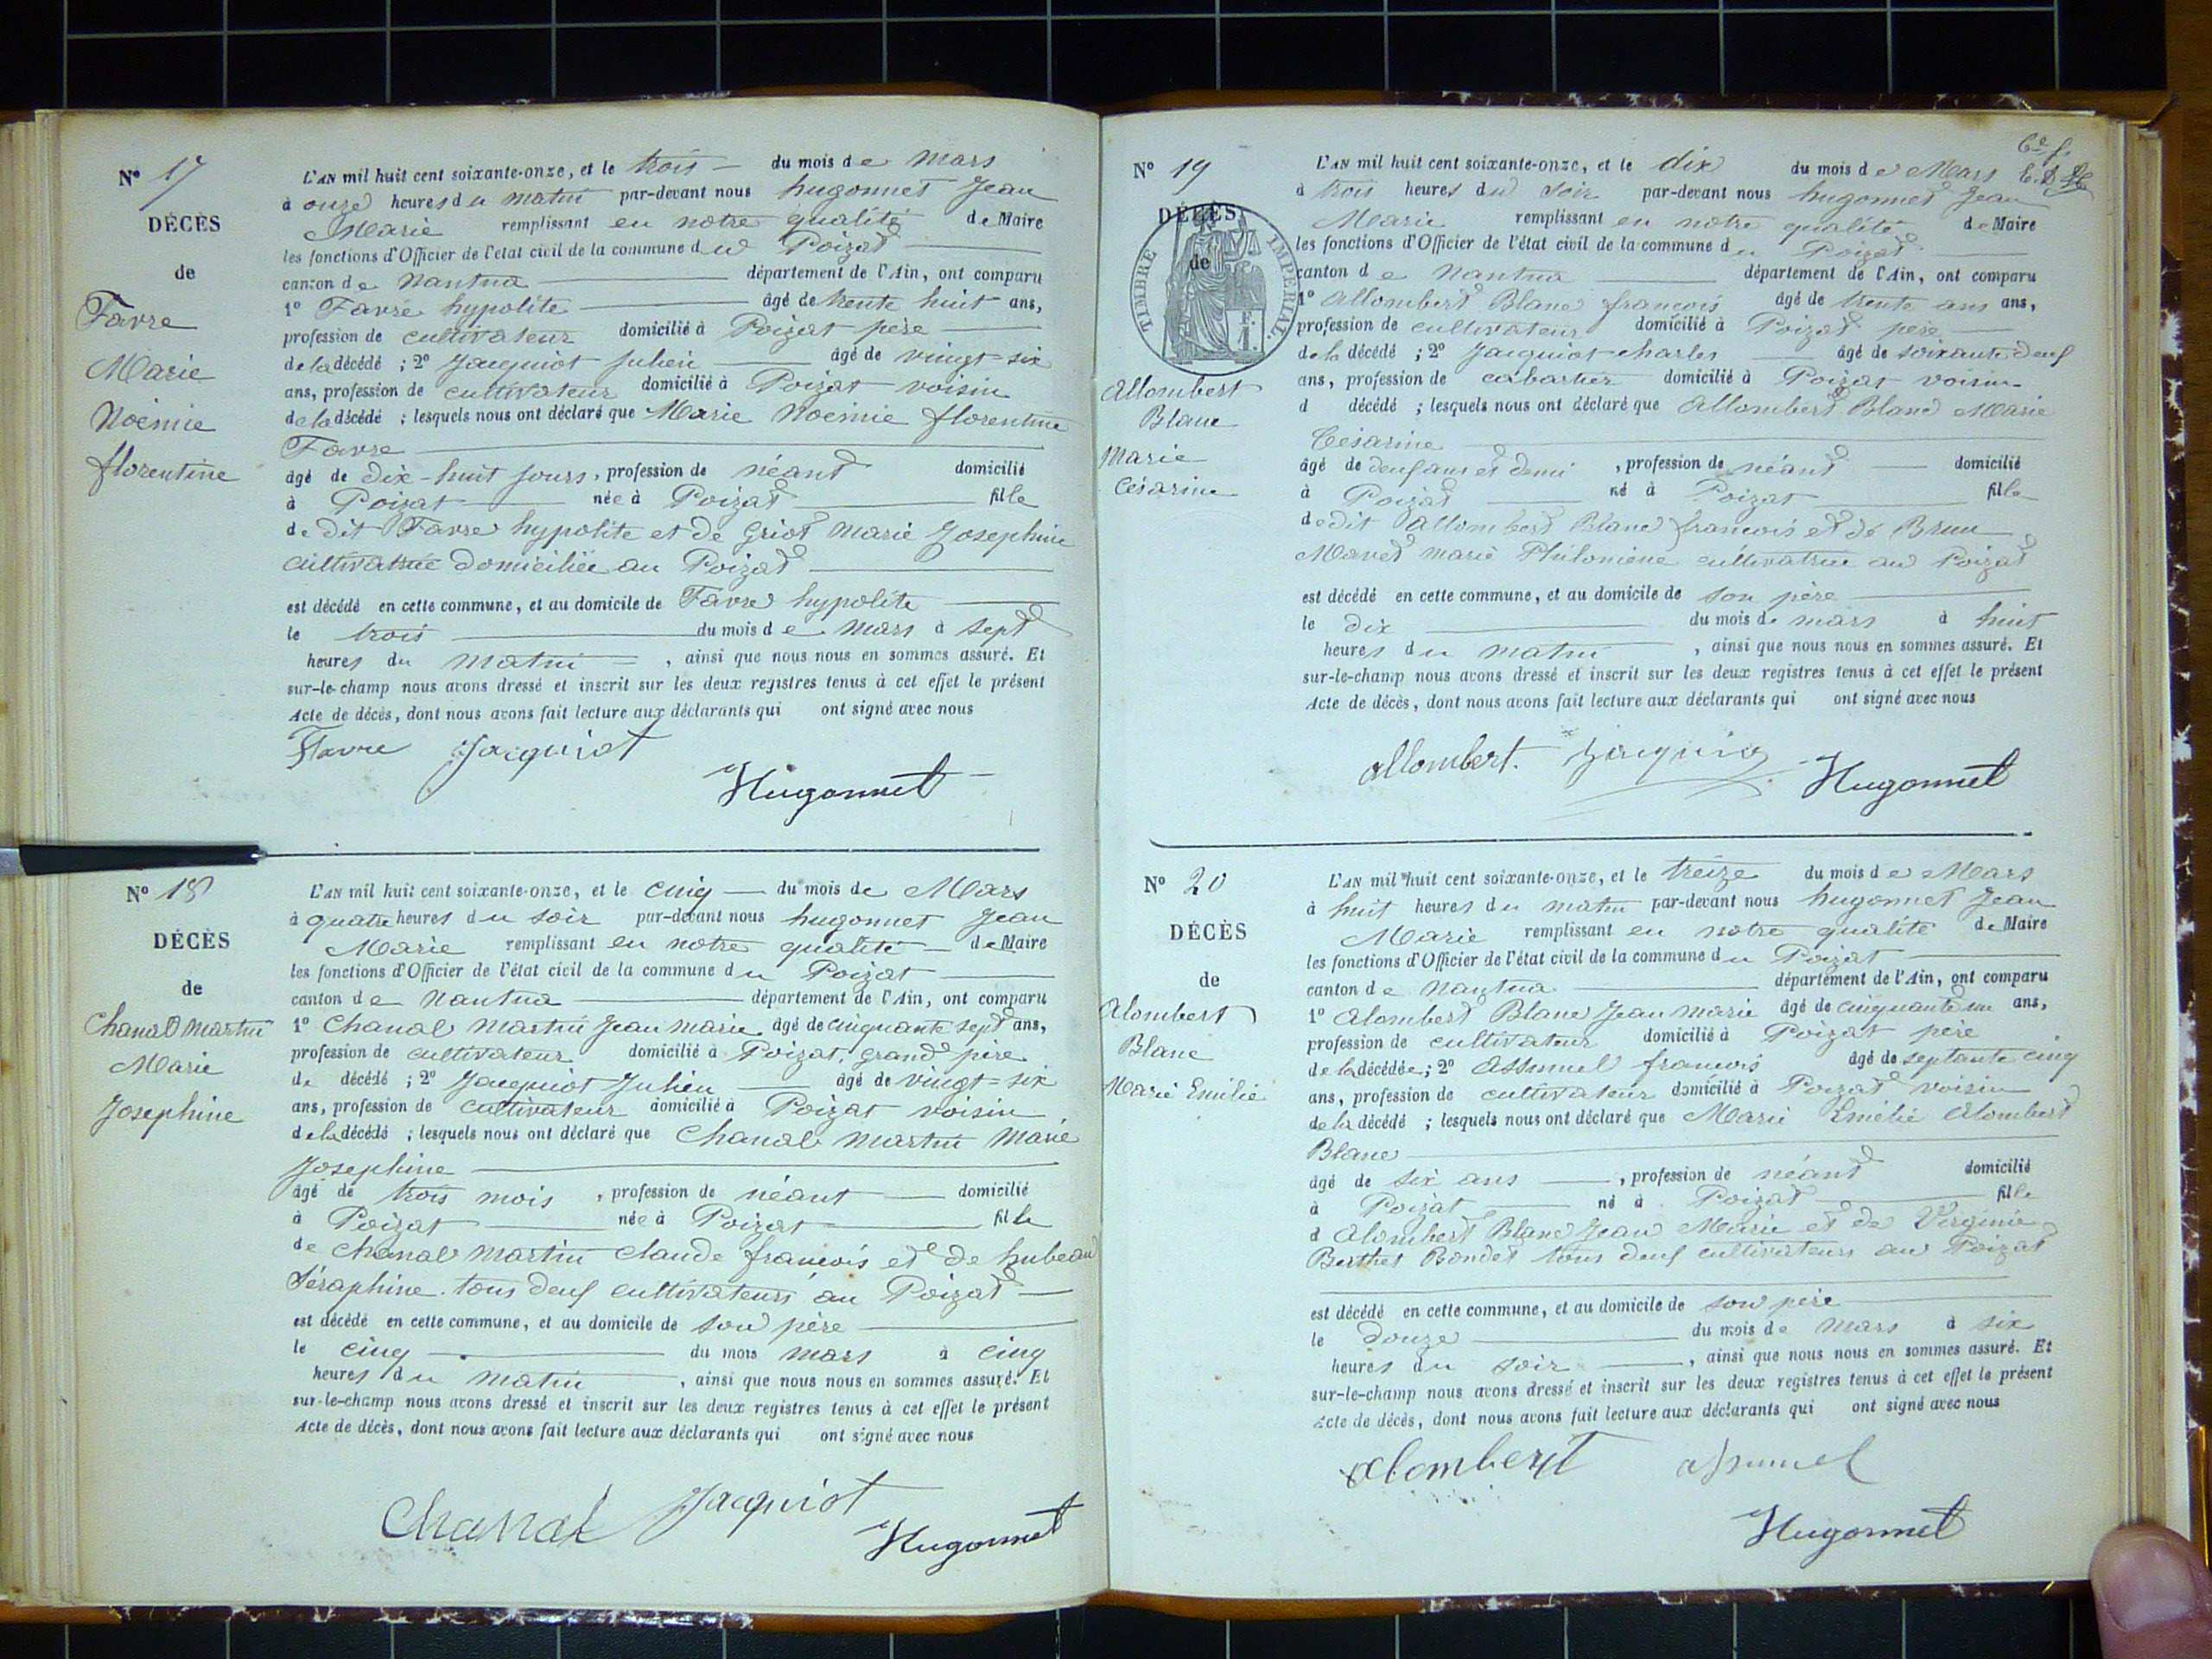 N° 17
DÉCÈS
de
Favre
Marie
Noémie
florentine
L'AN mil huit cent soixante-onze, et le trois du mois de Mars
à onze heures du matin par-devant nous hugonnet Jean
Marie remplissant en notre qualité de Maire
les fonctions d'Officier de l'état civil de la commune du Poizat
canton de Nantua département de l'Ain, ont comparu
1° Favre hypolite âgé de trente huit ans,
profession de cultivateur domicilié à Poizat père
de la décédé ; 2° Jacquiot Julien âgé de vingt-six
ans, profession de cultivateur domicilié à Poizat voisin
de la décédé ; lesquels nous ont déclaré que Marie Noémie florentine
Favre
âgé de dix-huit jours, profession de néant domicilié
à Poizat née à Poizat fille
de dit Favre hypolite et de Griot Marie Josephine
cultivatrice domiciliée au Poizat
est décédé en cette commune, et au domicile de Favre hypolite
le trois du mois de Mars à sept
heures du matin, ainsi que nous nous en sommes assuré. Et
sur-le-champ nous avons dressé et inscrit sur les deux registres tenus à cet effet le présent
Acte de décès, dont nous avons fait lecture aux déclarants qui ont signé avec nous
Favre Jacquiot
Hugonnet
N° 18
DÉCÈS
de
Chanal Martin
Marie
Josephine
L'AN mil huit cent soixante-onze, et le cinq du mois de Mars
à quatre heures du soir par-devant nous hugonnet Jean
Marie remplissant en notre qualité de Maire
les fonctions d'Officier de l'état civil de la commune du Poizat
canton de Nantua département de l'Ain, ont comparu
1° Chanal Martin Jean Marie âgé de cinquante sept ans,
profession de cultivateur domicilié à Poizat, grand père
de décédé ; 2° Jacquiot Julien âgé de vingt-six
ans, profession de cultivateur domicilié à Poizat voisin
de la décédé ; lesquels nous ont déclaré que Chanal Martin Marie
Josephine
âgé de trois mois, profession de néant domicilié
à Poizat née à Poizat fille
de Chanal Martin Claude francois et de hubeau
Séraphine tous deuf cultivateurs au Poizat
est décédé en cette commune, et au domicile de son père
le cinq du mois mars à cinq
heures du matin, ainsi que nous nous en sommes assuré. Et
sur-le-champ nous avons dressé et inscrit sur les deux registres tenus à cet effet le présent
Acte de décès, dont nous avons fait lecture aux déclarants qui ont signé avec nous
Chanal Jacquiot
Hugonnet
N° 19
DÉCÈS
de
TIMBRE IMPÉRIAL
F.
1.
Allombert
Blanc
Marie
Césarine
L'AN mil huit cent soixante-onze, et le dix du mois de Mars
à trois heures du soir par-devant nous hugonnet Jean
Marie remplissant en notre qualité de Maire
les fonctions d'Officier de l'état civil de la commune du Poizat
canton de Nantua département de l'Ain, ont comparu
1° Allombert Blanc francois âgé de trente ans ans,
profession de cultivateur domicilié à Poizat père
de la décédé ; 2° Jacquiot charles âgé de soixante deuf
ans, profession de cabartier domicilié à Poizat voisin
d décédé ; lesquels nous ont déclaré que Allombert Blanc Marie
Césarine
âgé de deuf ans et demi, profession de néant domicilié
à Poizat né à Poizat fille
de dit Allombert Blanc francois et de Brun
Mavet marie Philomène cultivatrice au Poizat
est décédé en cette commune, et au domicile de son père
le dix du mois de mars à huit
heures du matin, ainsi que nous nous en sommes assuré. Et
sur-le-champ nous avons dressé et inscrit sur les deux registres tenus à cet effet le présent
Acte de décès, dont nous avons fait lecture aux déclarants qui ont signé avec nous
allombert. Jaquio
Hugonnet
N° 20
DÉCÈS
de
Alombert
Blanc
Marie Emilie
L'AN mil huit cent soixante-onze, et le treize du mois de Mars
à huit heures du matin par-devant nous hugonnet Jean
Marie remplissant en notre qualité de Maire
les fonctions d'Officier de l'état civil de la commune du Poizat
canton de Nantua département de l'Ain, ont comparu
1° Alombert Blanc Jean Marie âgé de cinquante un ans,
profession de cultivateur domicilié à Poizat père
de la décédée ; 2° Assumel francois âgé de septante cinq
ans, profession de cultivateur domicilié à Poizat voisin
de la décédé ; lesquels nous ont déclaré que Marie Emélie Alombert
Blanc
âgé de six ans, profession de néant domicilié
à Poizat né à Poizat fille
d Alombert Blanc Jean Marie et de Virginie
Berthet Bondet tous deuf cultivateurs au Poizat
est décédé en cette commune, et au domicile de son père
le douze du mois de Mars à six
heures du soir, ainsi que nous nous en sommes assuré. Et
sur-le-champ nous avons dressé et inscrit sur les deux registres tenus à cet effet le présent
Acte de décès, dont nous avons fait lecture aux déclarants qui ont signé avec nous
Alombert assumel
Hugonnet